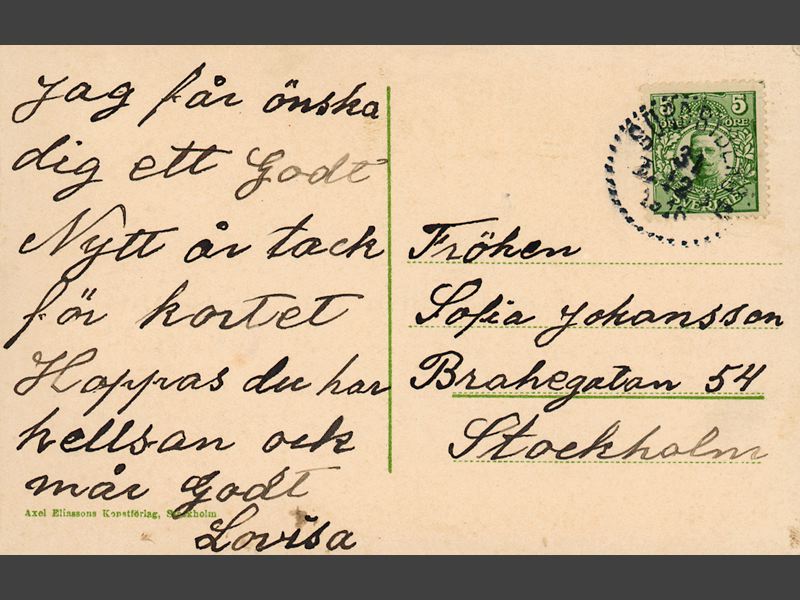 Jag får önska
dig ett Godt
Nytt år tack
för kortet
Hoppas du har
hellsan ock
mår Godt
Lovisa
Axel Eliassons Konstförlag, Stockholm
5 5
SVERIGE
Fröken
Sofia Johansson
Brahegatan 54
Stockholm